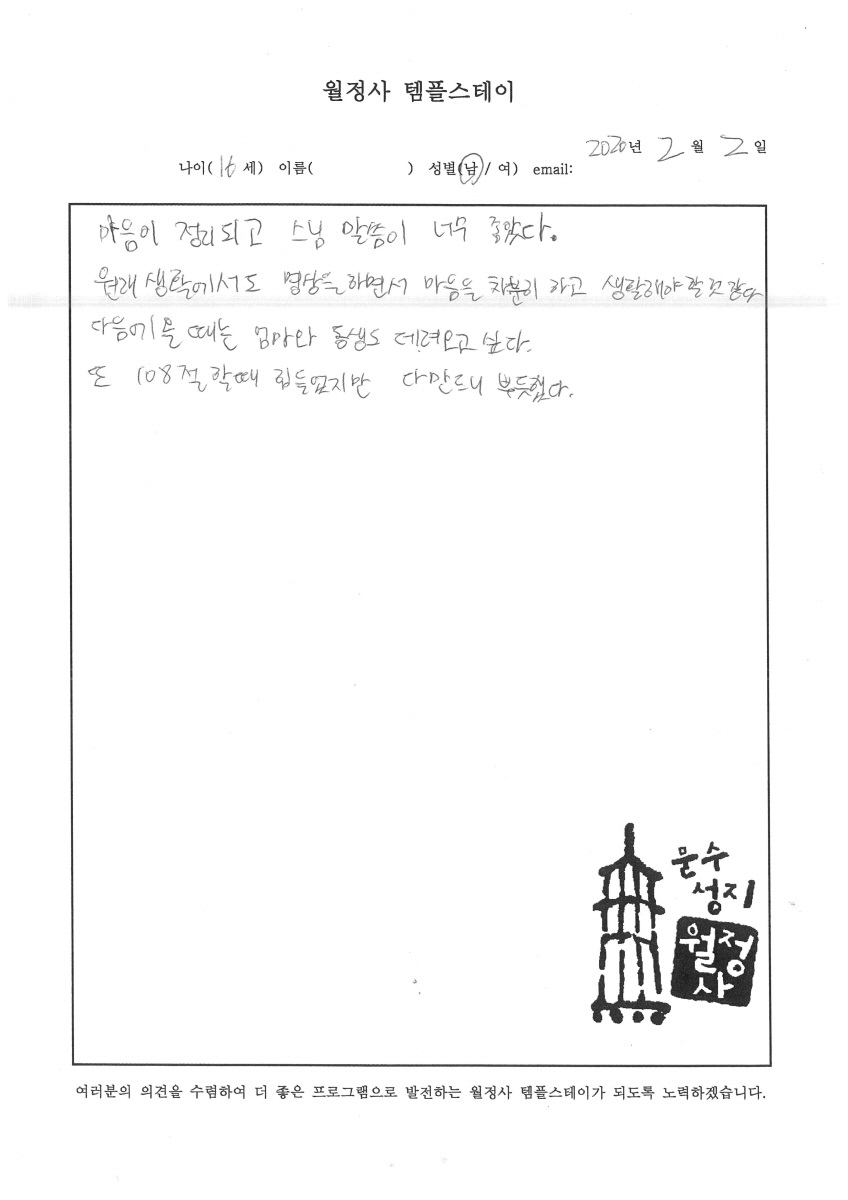 월정사 템플스테이
2020년 2월 2일
나이(16세) 이름( ) 성별(남/여) email:
마음이 정리되고 스님 말씀이 너무 좋았다.
원래 생활에서도 명상을 하면서 마음을 차분히 하고 생활해야 할 것 같다
다음에 올 때는 엄마와 동생도 데려오고 싶다.
또 108절 할때 힘들었지만 다 만드니 뿌듯했다.
문수
성지
월정
사
여러분의 의견을 수렴하여 더 좋은 프로그램으로 발전하는 월정사 템플스테이가 되도록 노력하겠습니다.